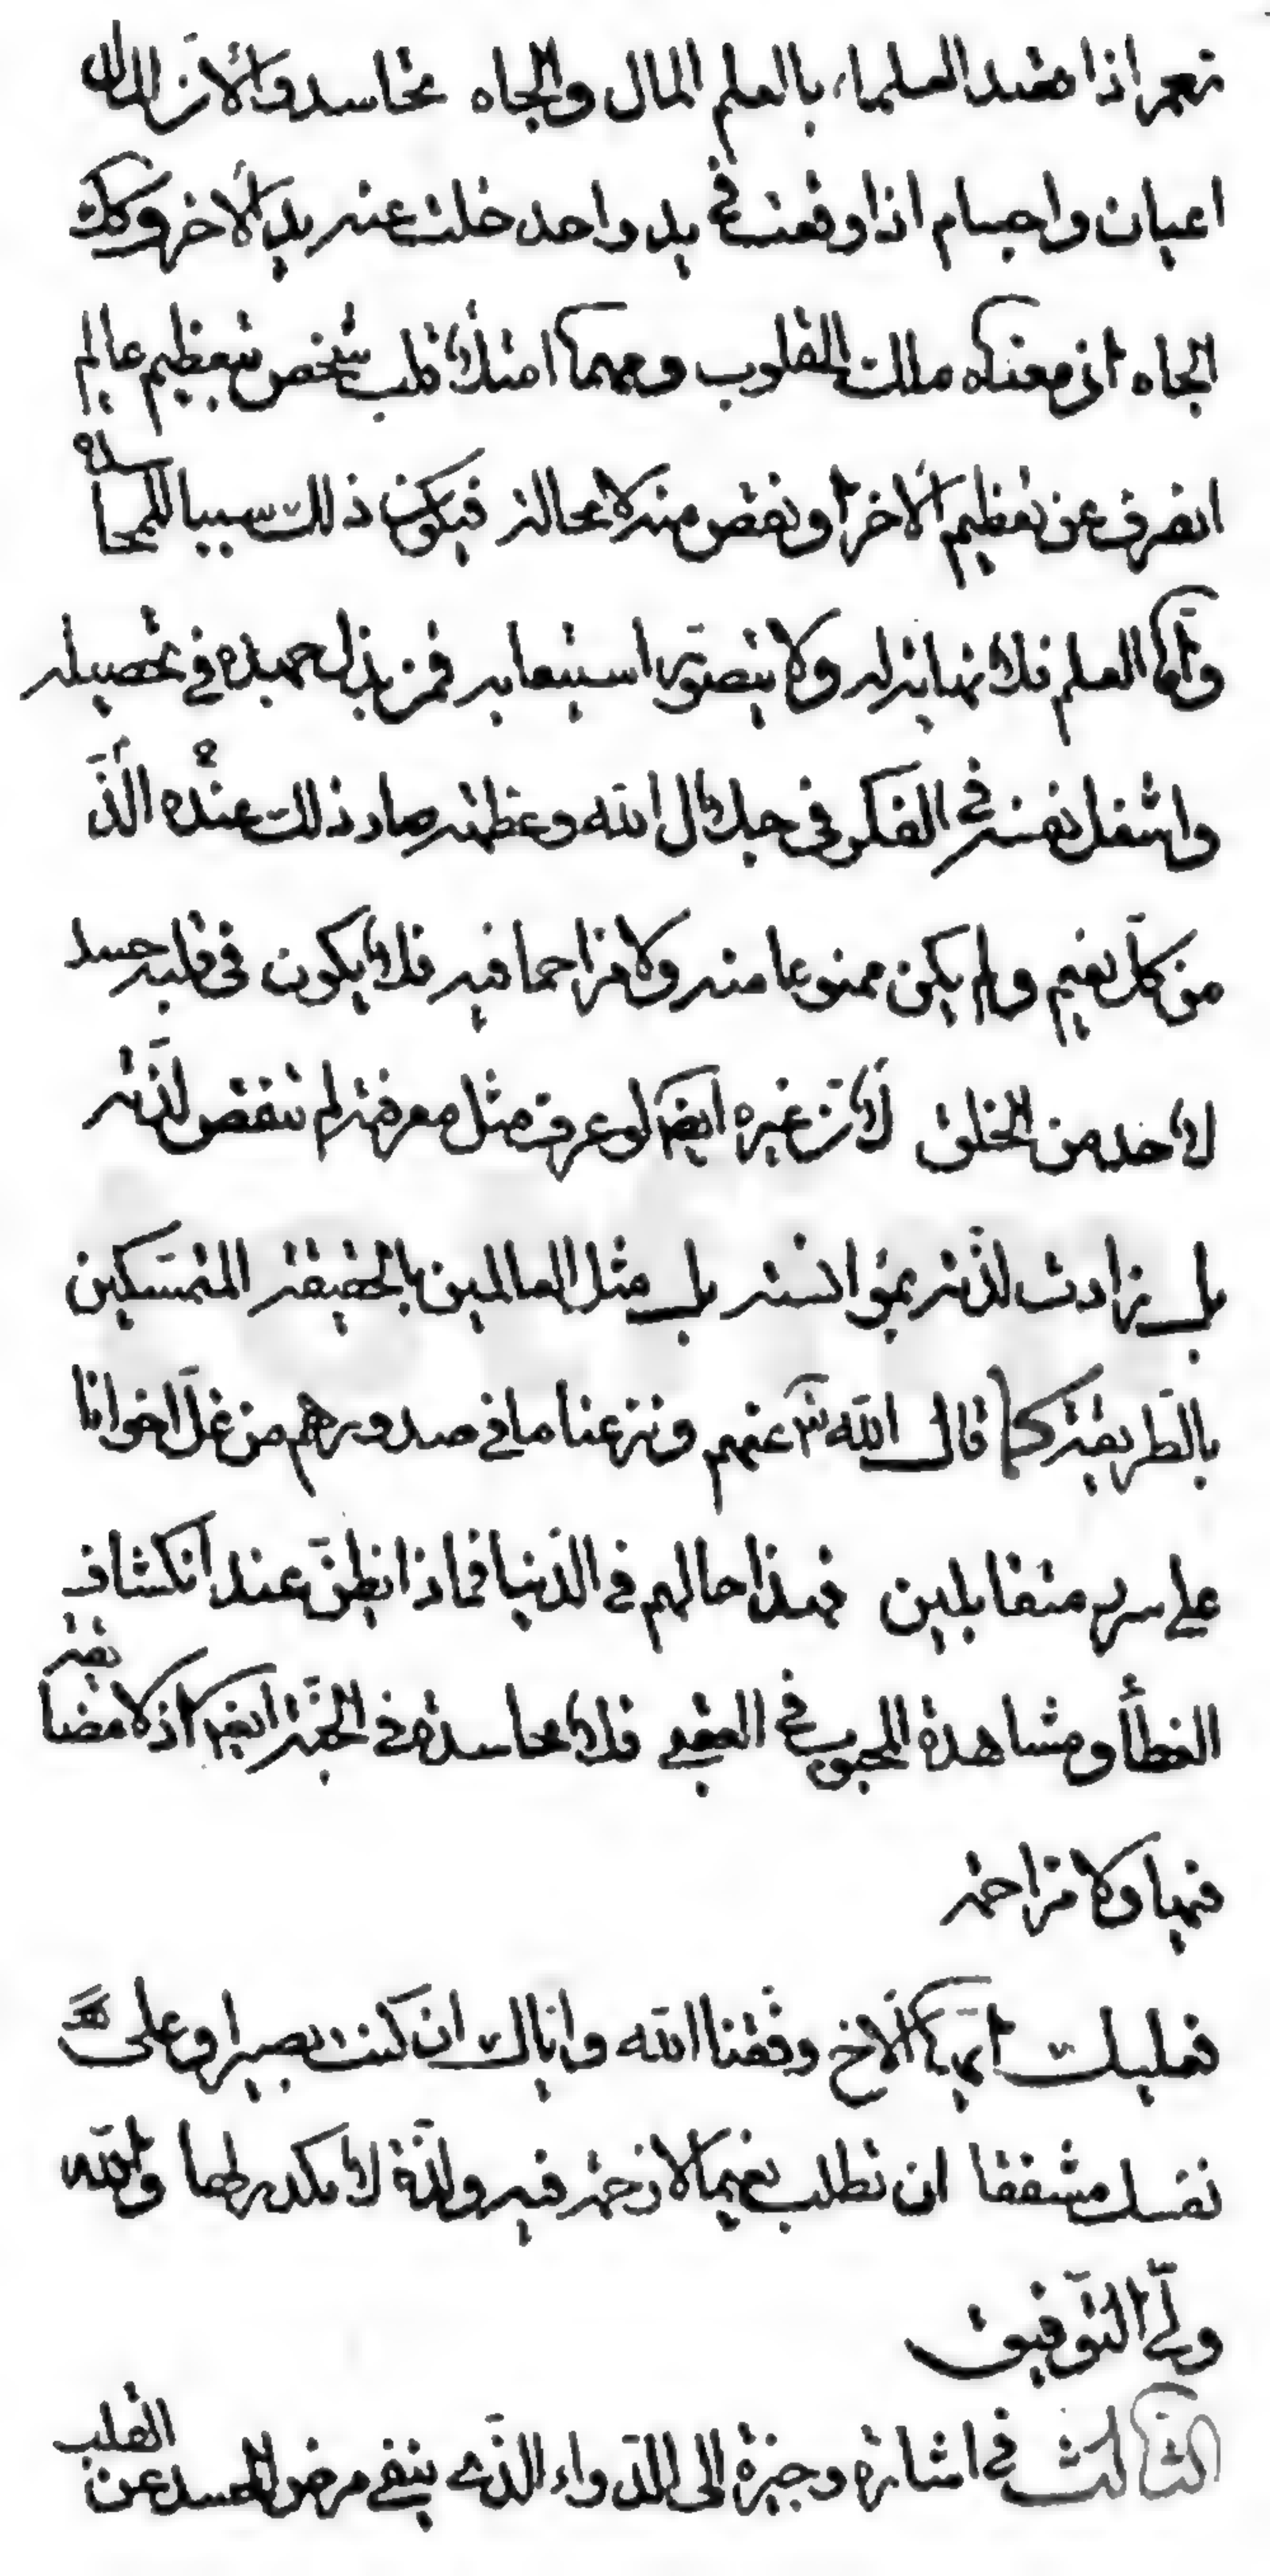 نعم اذا قصد العلماء بالعلم المال والجاه تحاسدوا لان المال
اعيان واجسام اذا وقعت في يد واحد خلت عنه يد الاخر وكك
الجاه اذ معناه ملك القلوب ومهما امتلأ قلب شخص بتعظيم عالم
انصرف عن تعظيم الاخر او نقص منه لا محالة فيكون ذلك سببا للمحاسدة
وامّا العلم فلا نهاية له ولا يتصوّر استيعابه فمن بذل جهده في تحصيله
واشغل نفسه في الفكر في جلال الله وعظمته صار ذلك عنده الذّ
من كلّ نعيم ولم يكن ممنوعا منه ولا مزاحما فيه فلا يكون في قلبه حسد
لاحد من الخلق لانّ غيره ايضا لو عرف مثل معرفته لم تنقص لذّته
بل زادت لذّته بمؤانسته بل مثل العالمين بالحقيقة المتمسّكين
بالطّريقة كما قال الله تعا عنهم ونزعنا ما في صدورهم من غلّ اخوانا
على سرر متقابلين فهذا حالهم في الدّنيا فماذا يظنّ عند انكشاف
الغطأ ومشاهدة المحبوب في العقبى فلا محاسدة في الجنّة ايضا اذ لا مضايقة
فيها ولا مزاحمة
فعليك ايّها الاخ وفّقنا الله وايّاك ان كنت بصيرا وعلى
نفسك مشفقا ان تطلب نعيما لا زحمة فيه ولذّة لا مكدر لها والله
وليّ التّوفيق
الثّالث في اشارة وجيزة الى الدّواء الّذي ينفى مرض الحسد عن القلب